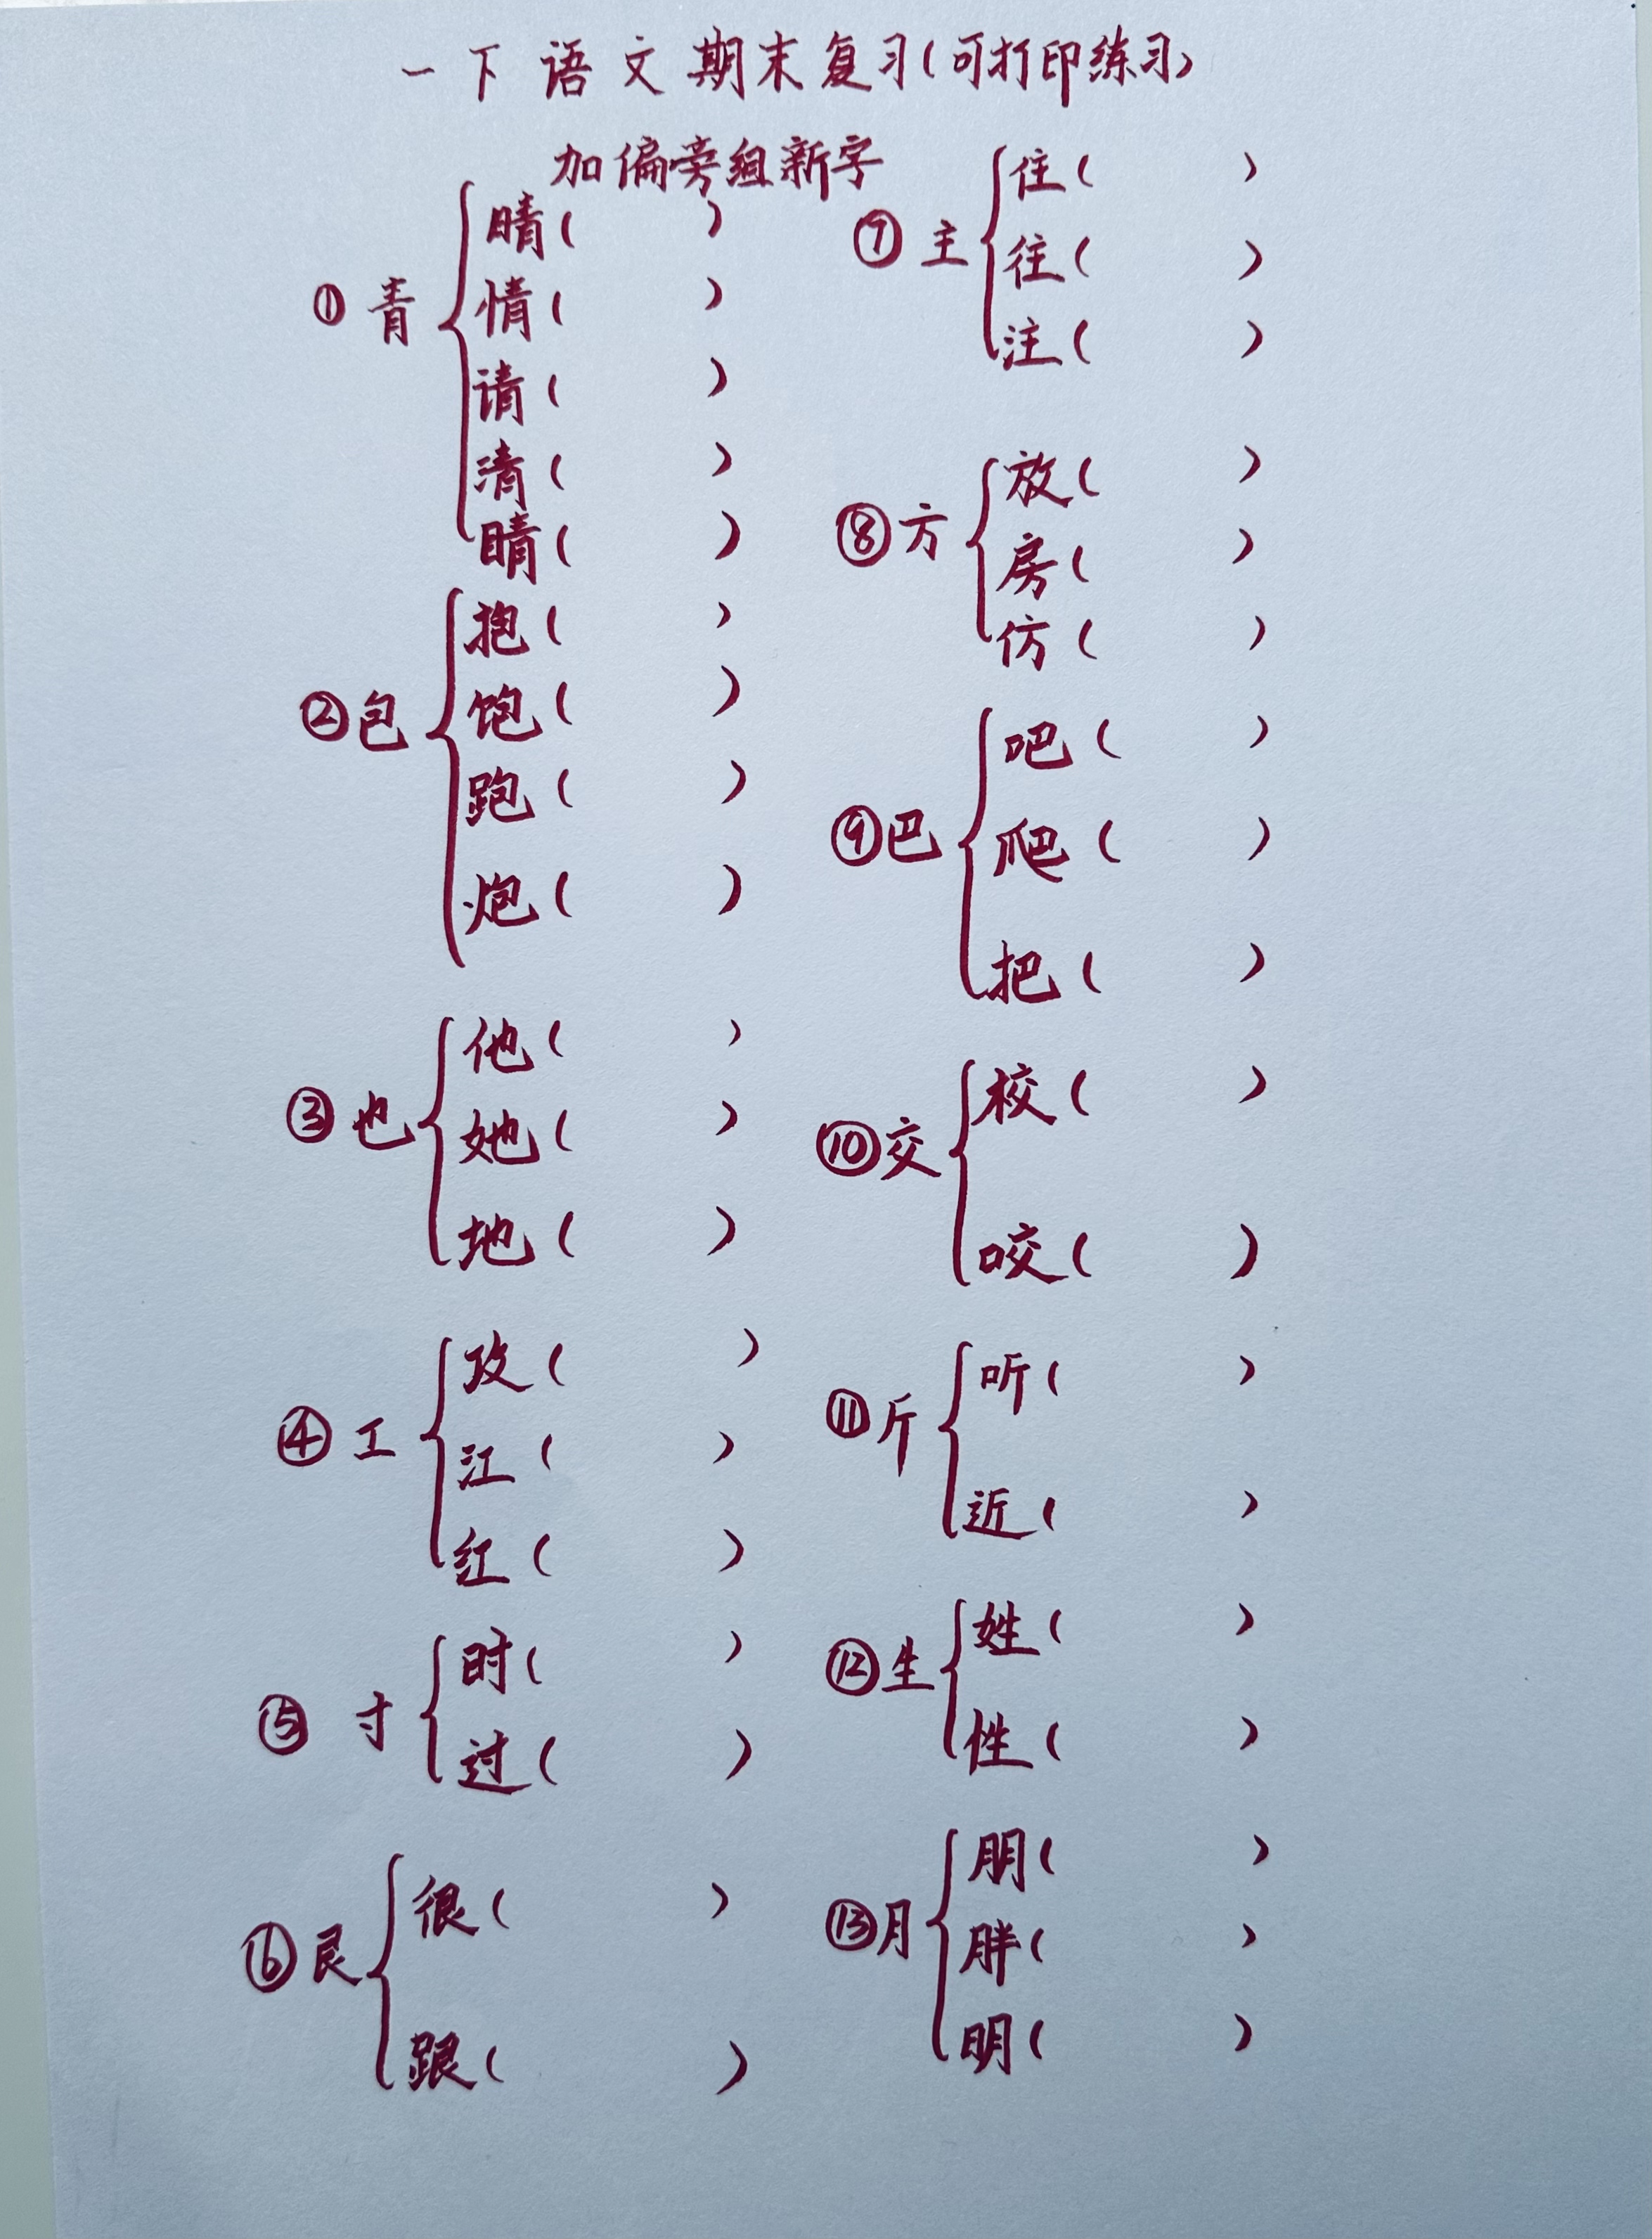 一下语文期末复习(可打印练习)
加偏旁组新字
①青
晴(  )
情(  )
请(  )
清(  )
睛(  )
②包
抱(  )
饱(  )
跑(  )
炮(  )
③也
他(  )
她(  )
地(  )
④工
攻(  )
江(  )
红(  )
⑤寸
时(  )
过(  )
⑥艮
很(  )
跟(  )
⑦主
住(  )
往(  )
注(  )
⑧方
放(  )
房(  )
仿(  )
⑨巴
吧(  )
爬(  )
把(  )
⑩交
校(  )
咬(  )
⑪斤
听(  )
近(  )
⑫生
姓(  )
性(  )
⑬月
朋(  )
胖(  )
明(  )